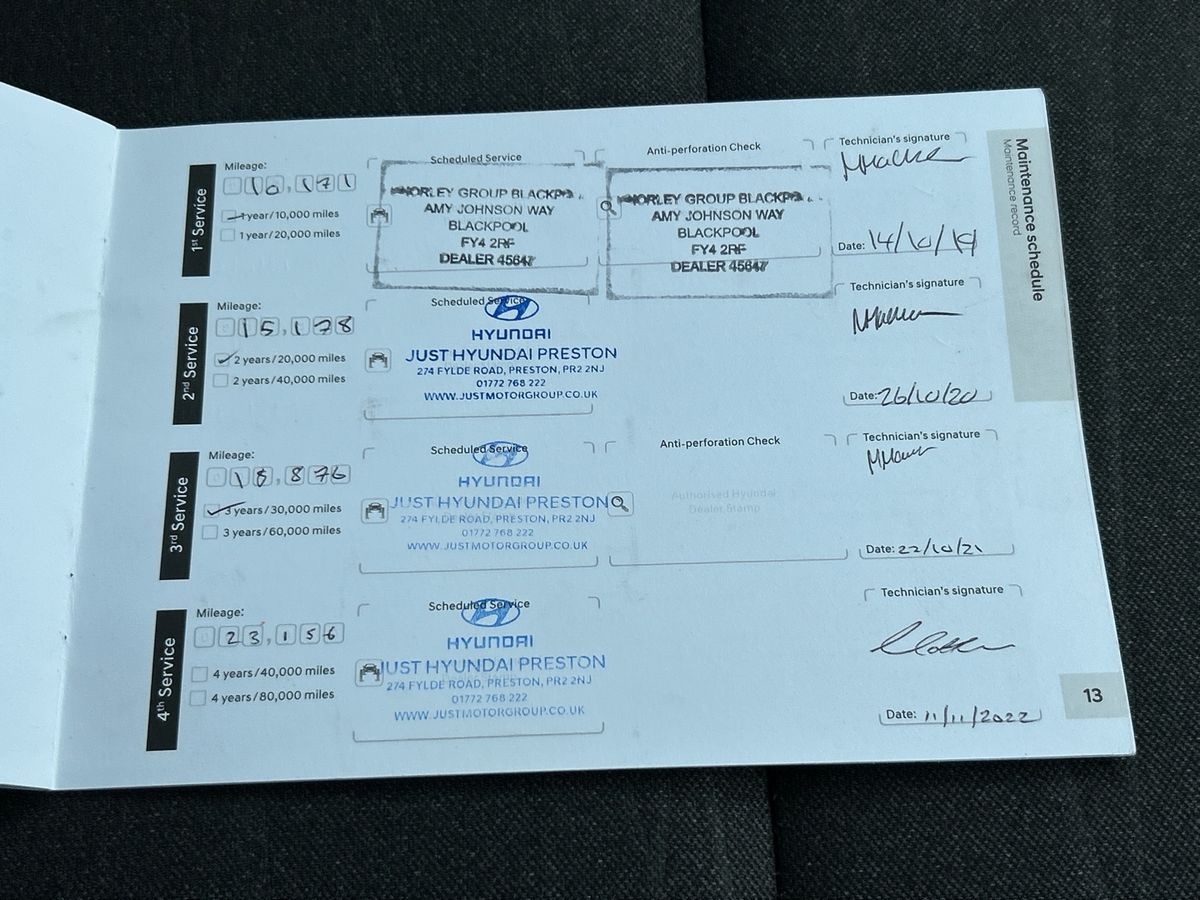 Maintenance schedule
Maintenance record
1st Service
Mileage:
10,171
1 year/10,000 miles
1 year/20,000 miles
Scheduled Service
GROUP
AMY JOHNSON WAY
BLACKPOOL
FY4 2RF
DEALER 45647
Anti-perforation Check
GROUP
AMY JOHNSON WAY
BLACKPOOL
FY4 2RF
DEALER 45647
Technician's signature
Date: 14/10/19
2nd Service
Mileage:
15,178
2 years/20,000 miles
2 years/40,000 miles
Scheduled Service
HYUNDAI
JUST HYUNDAI PRESTON
274 FYLDE ROAD, PRESTON, PR2 2NJ
01772 768 222
WWW.JUSTMOTORGROUP.CO.UK
Technician's signature
Date: 26/10/20
3rd Service
Mileage:
18,876
3 years/30,000 miles
3 years/60,000 miles
Scheduled Service
HYUNDAI
JUST HYUNDAI PRESTON
274 FYLDE ROAD, PRESTON, PR2 2NJ
01772 768 222
WWW.JUSTMOTORGROUP.CO.UK
Anti-perforation Check
Authorised Hyundai
Dealer Stamp
Technician's signature
Date: 22/10/21
4th Service
Mileage:
23,156
4 years/40,000 miles
4 years/80,000 miles
Scheduled Service
HYUNDAI
JUST HYUNDAI PRESTON
274 FYLDE ROAD, PRESTON, PR2 2NJ
01772 768 222
WWW.JUSTMOTORGROUP.CO.UK
Technician's signature
Date: 11/11/2022
13